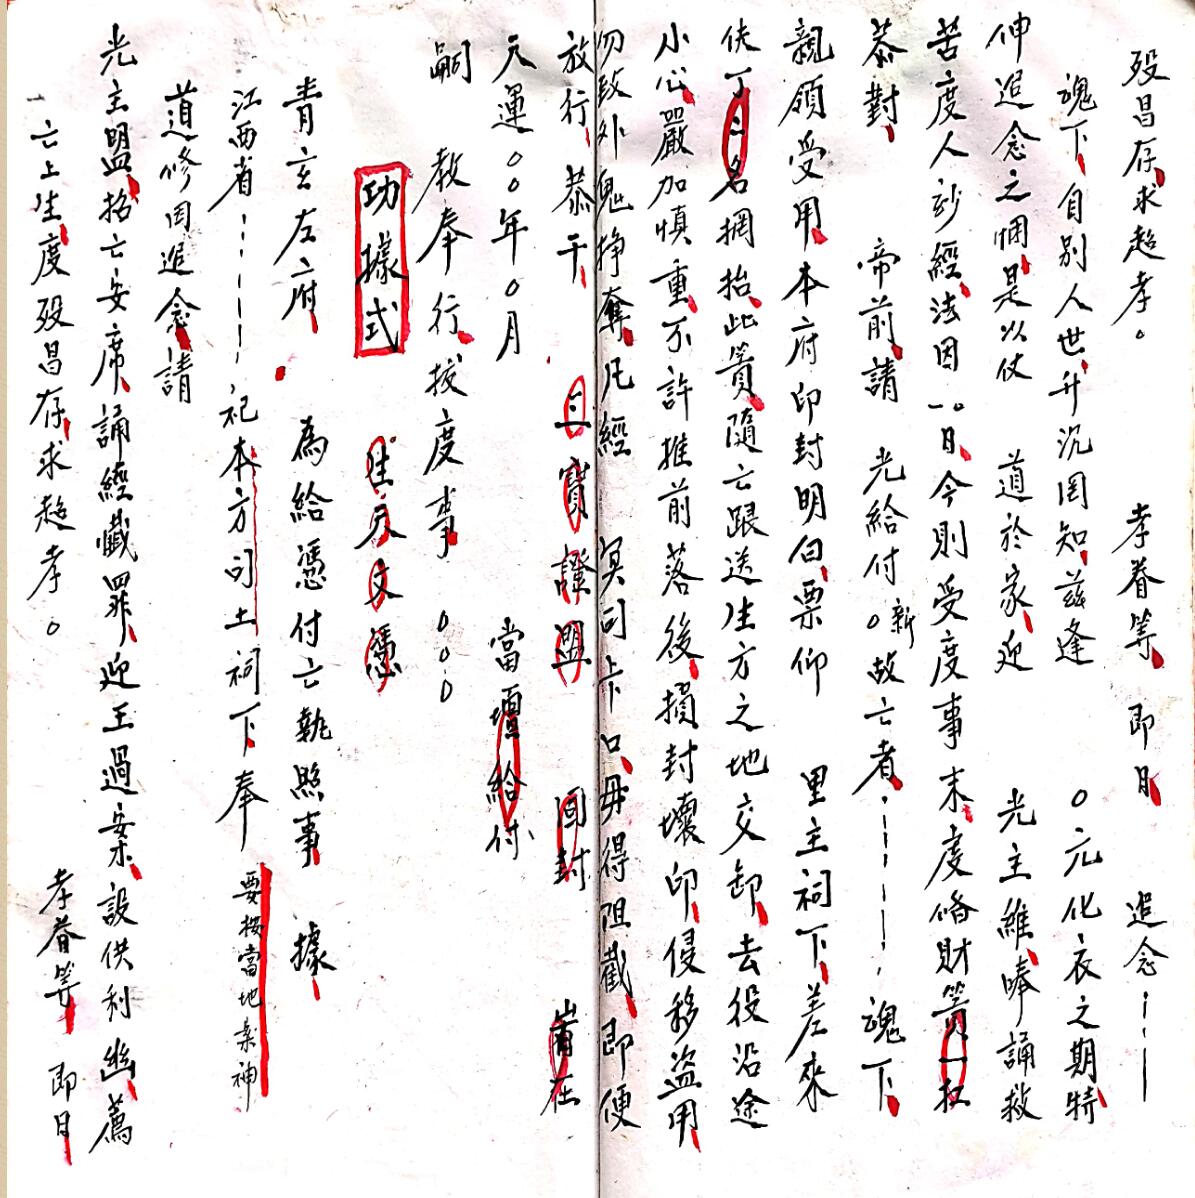 殁昌存求超孝。 孝眷等 即日 追念
魂下自别人世升沉罔知兹逢 〇元化衣之期特
伸追念之悃是以仗 道於家迎 光主維唪誦救
苦度人妙經法因一〇日今則受度事末虔俻財篢一杠
恭對 帝前請 光給付〇新故亡者 魂下
親領受用本府印封明白票仰 里主祠下差來
伕丁二名捆抬此篢隨亡跟送生方之地交卸去役沿途
小心嚴加慎重不許推前落後損封壞印侵移盜用
勿致外鬼掙奪凡經 冥司卡口毋得阻截即便
放行恭干 三寶證盟 囬封 崗在
天運〇〇年〇月 當壇給付
嗣 教奉行拔度事〇〇〇
功據式 生天文憑
青玄左府 為給憑付亡執照事 據
江西省 祀本方司土祠下奉 要按當地菜神
道修因追念請
光主盟招亡安席誦經懺罪迎王過案設供利幽薦
亡上生度殁昌存求超孝。 孝眷等 即日